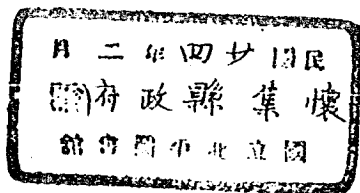 民國廿四年二月
懷集縣政府
國立北平圖書館